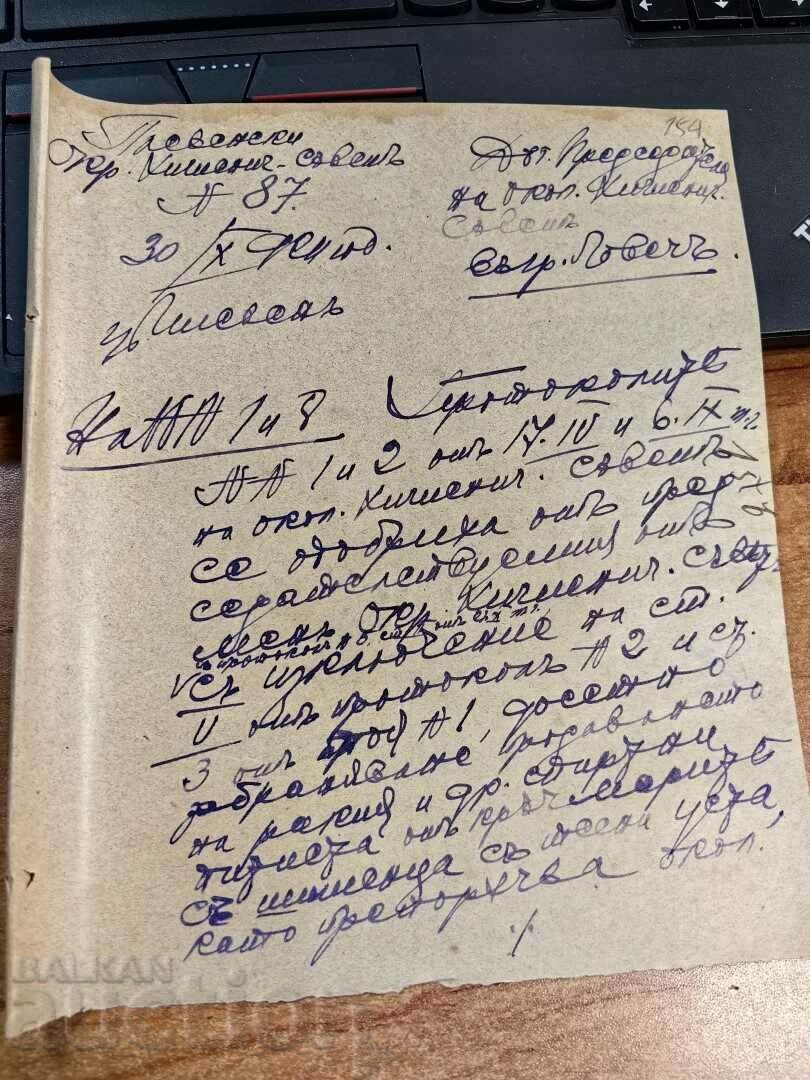 154
Плевенски
Окр. Хигиенич. съветъ
№ 87
30 / X
гр. Плевенъ
До г. Председателя
на окол. Хигиенич.
Съветъ
въ гр. Ловечъ.
На №№ 1 и 8
Протоколитѣ
№№ 1 и 2 отъ 17.IV и 6.IX т.г.
на окол. Хигиенич. съветъ
се одобриха отъ пред-
седателствуемия отъ
менъ Окр. Хигиенич. съветъ
съ изключение на ст.
V отъ протоколъ № 2 и ст.
3 отъ № 1, досежно
забраняване продаването
на ракия и др. спиртни
питиета отъ кръчмаритѣ
съ шишенца съ тесни уста,
както препоръчва окол.
./.
BALKAN
auction